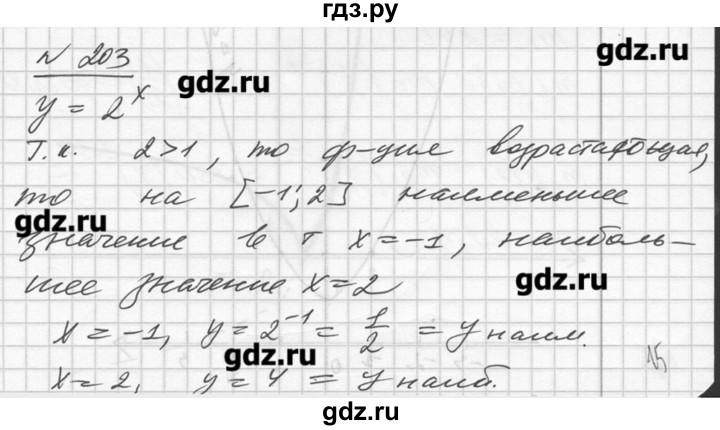 гдз.ру
№ 203
gdz.ru
gdz.ru
y = 2^x
Т.к. 2>1, то ф-ция возрастающая,
то на [-1; 2] наименьшее
gdz.ru
значение в т x = -1, наиболь-
gdz.ru
шее значение x = 2
x = -1, y = 2^-1 = 1/2 = y наим.
gdz.ru
15
x = 2, y = 4 = y наиб.
gdz.ru